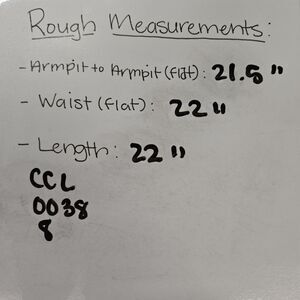 Rough Measurements:
- Armpit to Armpit (flat): 21.5"
- Waist (flat): 22"
- Length: 22"
CCL
0038
8